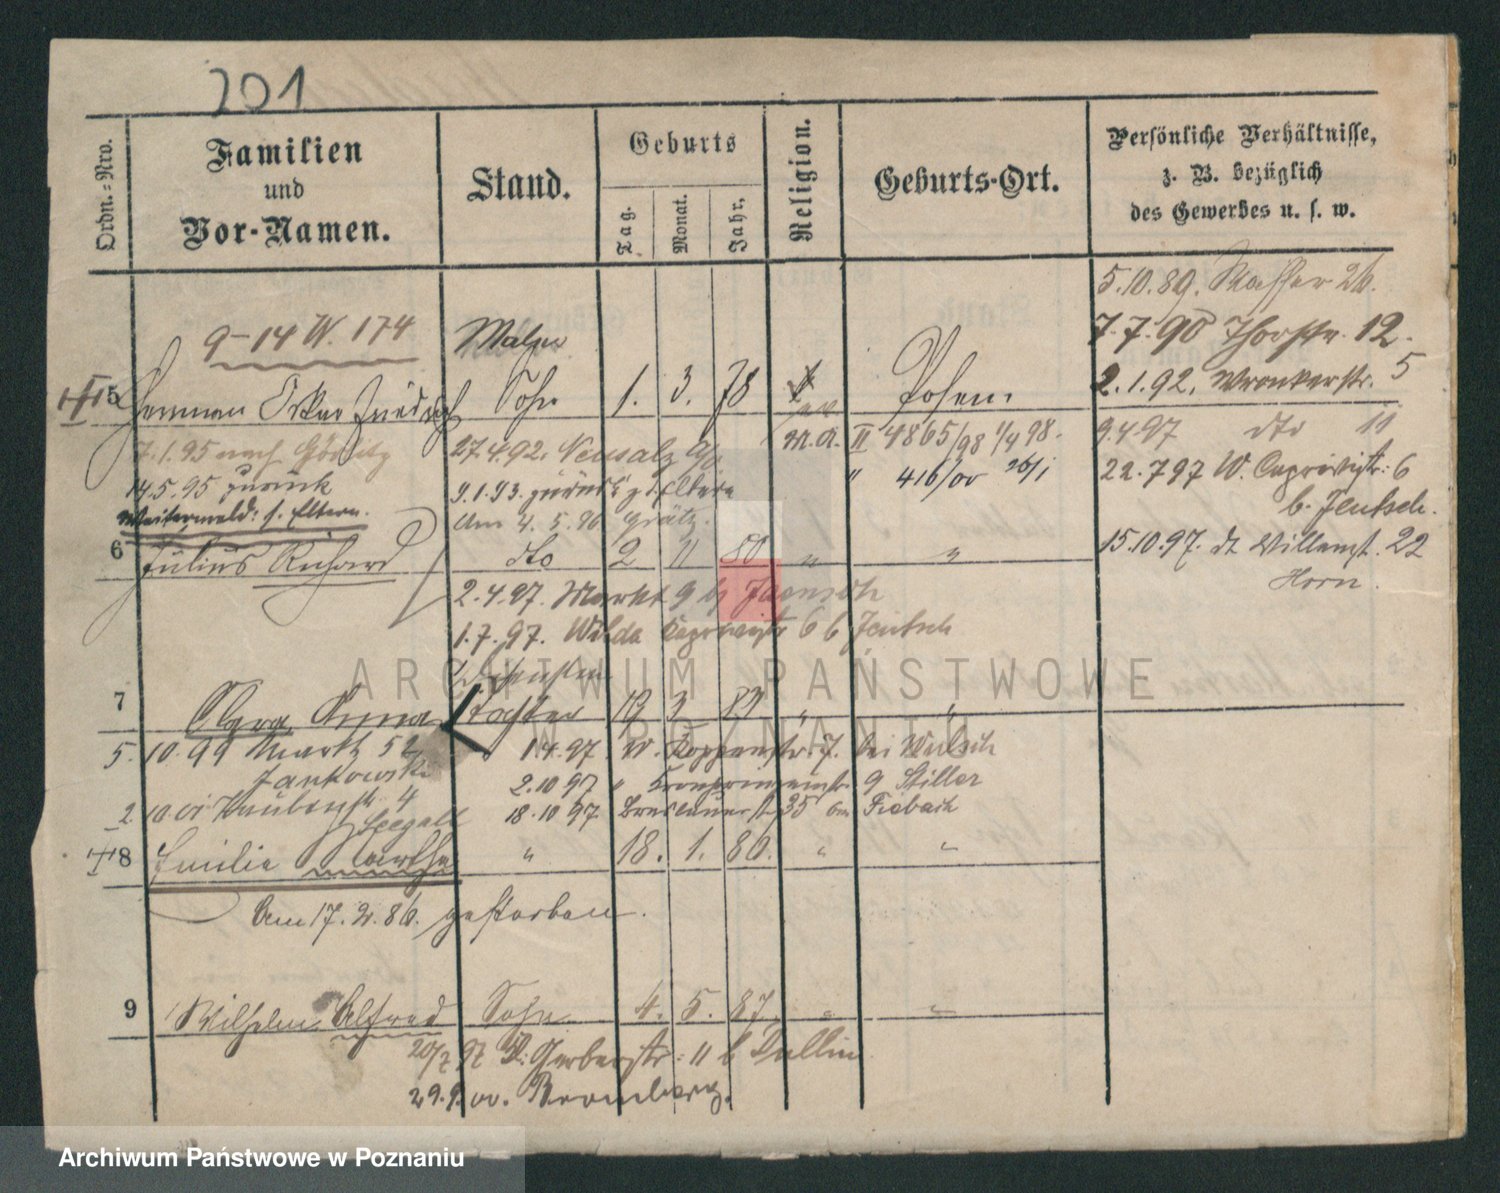 201
Ordn.=Nro.
Familien
und
Vor-Namen.
Stand.
Geburts
Tag.
Monat.
Jahr.
Religion.
Geburts-Ort.
Persönliche Verhältnisse,
z. B. bezüglich
des Gewerbes u. s. w.
5.10.89. Wasser 26.
9-14 W. 174
Maler
7.7.90 Thorstr. 12.
5 Herman Oskar Friedrich Sohn 1. 3. 78 Posen.
2.1.92. Wronkerstr. 5
7.1.95 nach Görlitz
27.4.92. Neusalz a/o
M.A. II 4865/98 1/4 98.
9.4.97 dto 11
14.5.95 zurück
9.1.93. zurück z. d. Eltern
" 416/00 26/1
22.7 97 W. Caprivistr. 6
b. Jeutsch.
Weitermeld: s. Eltern.
Am 4.5.96 Grätz.
6 Julius Richard dto 2 11 80 " "
15.10.97. dt Willemst. 22
Horn.
2.4.97. Markt 9 bei Jaensch
1.7.97. Wilda Caprivistr 6 b Jeutsch
7 Clara Anna Tochter 19 3 83 " "
5.10.99 Markt 52
Jankowski
1.4.97 W. Koppenstr. 7. bei Wulsch
2.10 97 " Kronprinzenstr. 9 Stiller
2 10.01 Taubenstr. 4
Seegall
18.10 97 Breslauerst 35 bei Fiebach
8 Emilie Martha " 18. 1. 86. " "
Am 17.2.86. gestorben.
9 Wilhelm Alfred Sohn 4. 5. 87 " "
20/7 97 Kl. Gerberstr: 11 b Dallin
29.9.00. Bromberg.
ARCHIWUM PAŃSTWOWE
W POZNANIU
Archiwum Państwowe w Poznaniu